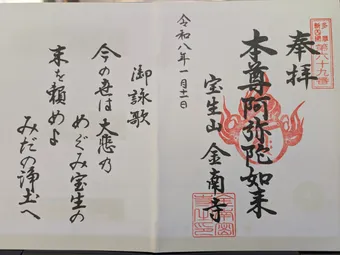 第六十九番
奉拝
本尊阿弥陀如来
宝生山 金南寺
令和八年一月十一日
御詠歌
今の世は大悲乃
めぐみ宝生の
末を頼めよ
みだの浄土へ